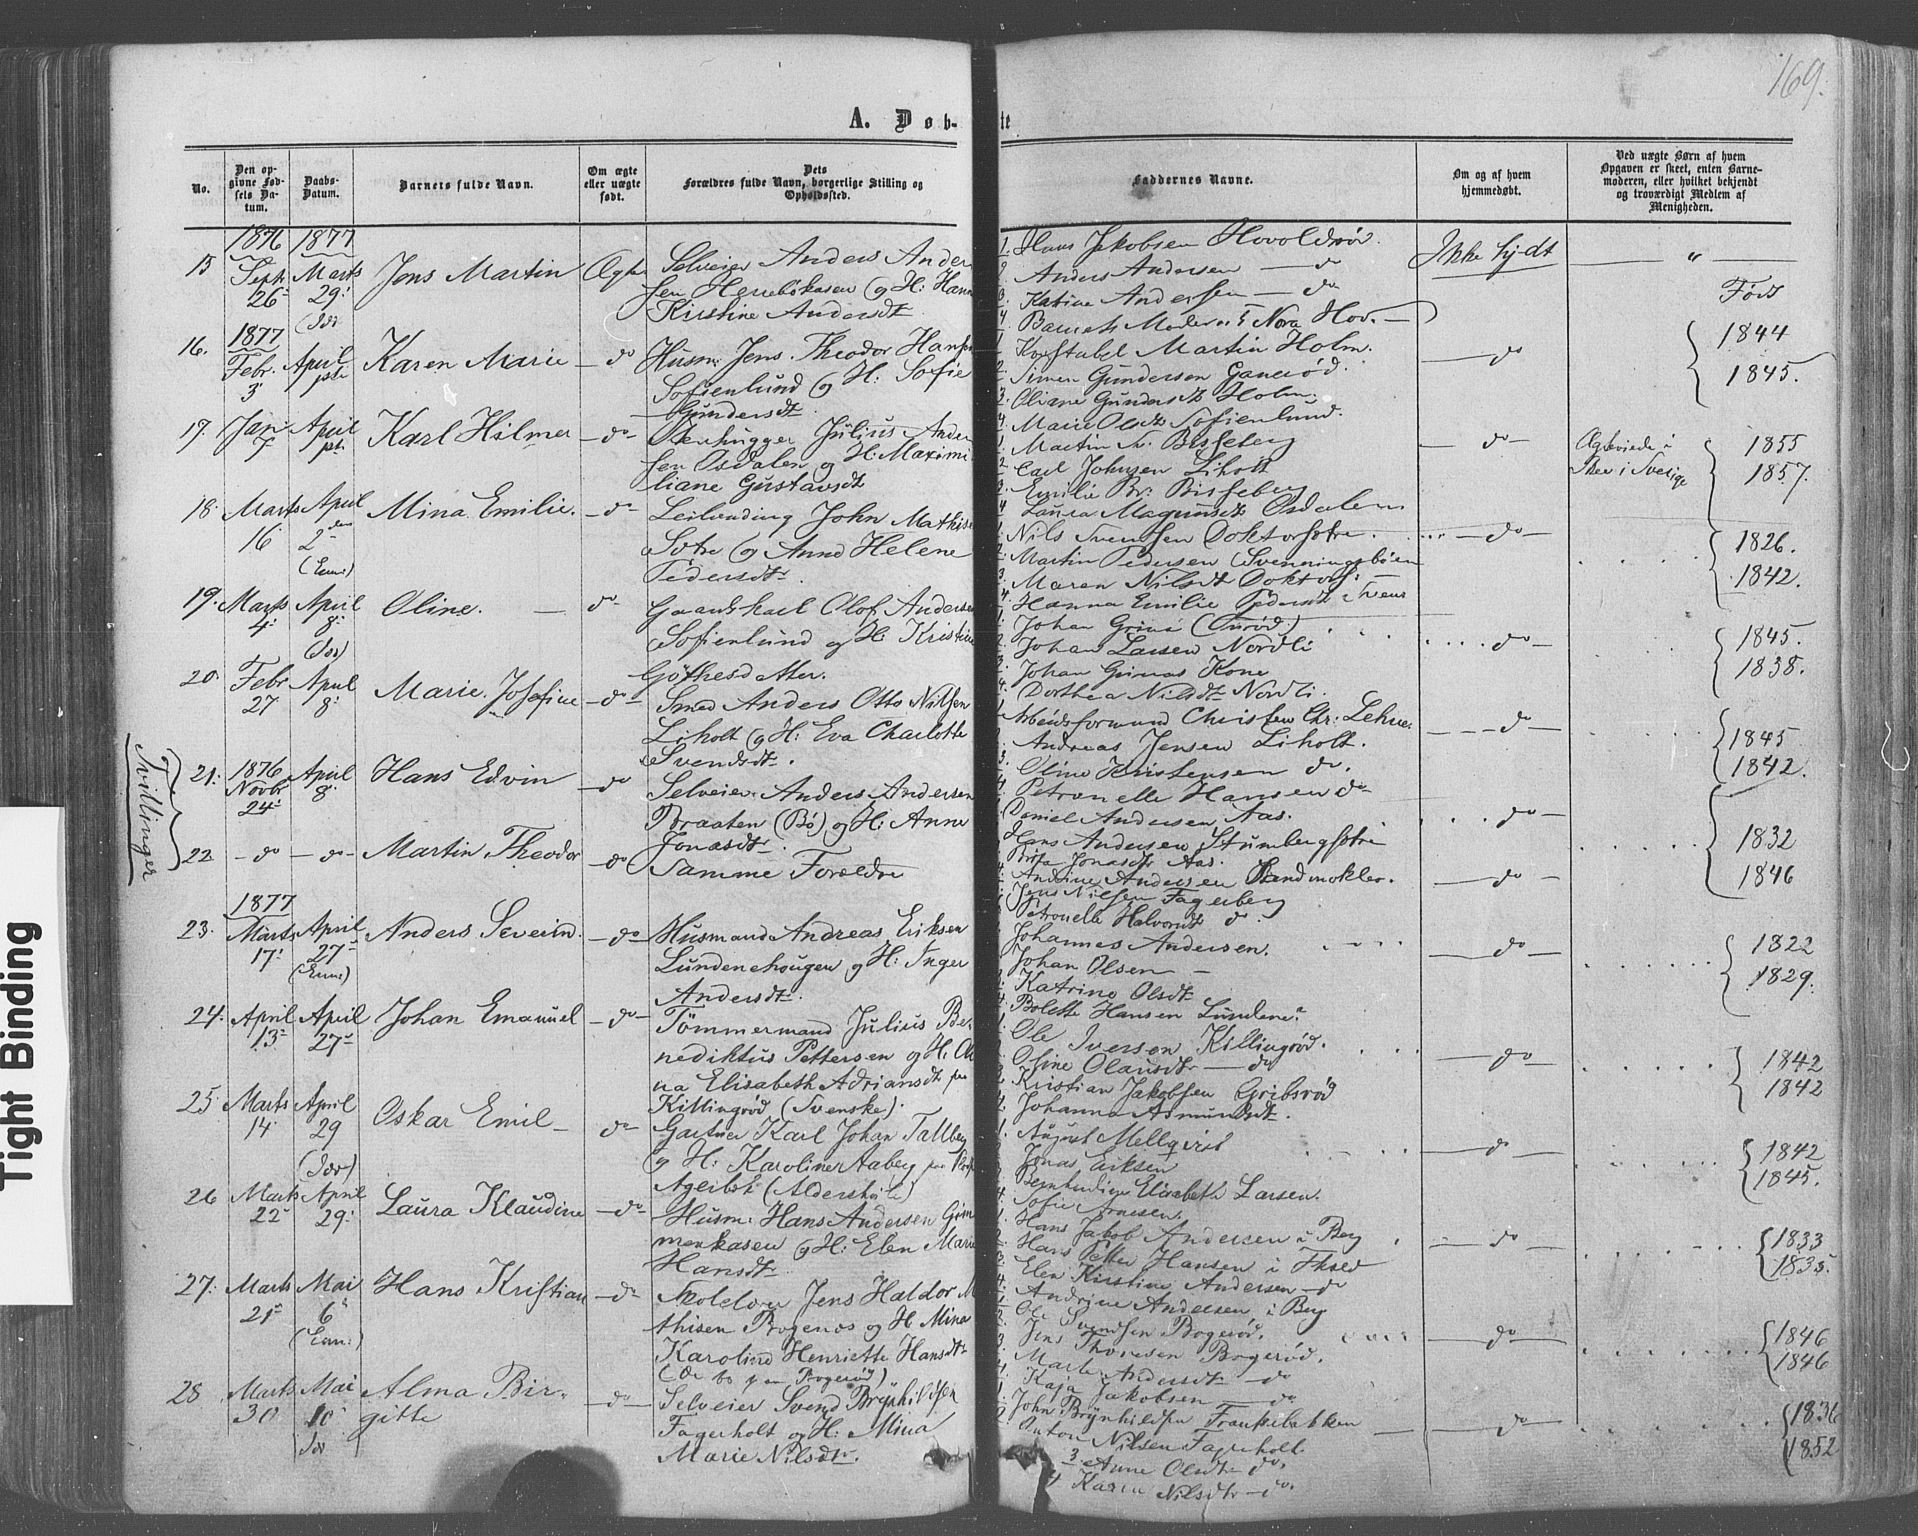 169.
A. Døb-
te
No.
Den op-
givne Fød-
sels Da-
tum.
Daabs-
Datum.
Barnets fulde Navn.
Om ægte
eller uægte
født.
Dets
Forældres fulde Navn, borgerlige Stilling og
Opholdssted.
Faddernes Navne.
Om og af hvem
hjemmedøbt.
Ved uægte Børn af hvem
Opgaven er skeet, enten Barne-
moderen, eller hvilket bekjendt
og troværdigt Medlem af
Menigheden.
15
1876
Septr
26
1877
Marts
29
(Idd)
Jens Martin
Ægte
Selveier Anders Ander
sen Herrebøkasen og H: Hanna
Kirstine Andersdt.
1. Hans Jakobsen Hovoldrød.
2. Anders Andersen — do
3. Katine Andersen — do
4. Barnets Moder
Ikke hjdt
"
Født
16.
1877
Febr.
3
April
1ste
Karen Marie
do
Husm: Jens Theodor Hansen
Sofienlund og H: Sofie
Gundersdt.
1. Konstabel Martin Holm.
2. Simen Gundersen Ganerød.
3. Oliane Gundersdt Holm.
4. Marie Olsdt Sofienlund.
do
1844
1845.
17.
Jan
7
April
1ste
Karl Hilmer
do
Stenhugger Julius Ander
sen Osdalen og H: Maximi
liane Gustavsdt
1. Martin N. Bisseberg
2. Carl Johnsen Liholt
3. Emilie Br: Bisseberg
4. Laura Magnusdt Osdalen
do
1855
1857.
18.
Marts
16
April
2den
(Enn:)
Mina Emilie.
do
Leilending John Mathise
Sætre og Anne Helene
Pedersdt.
1. Nils Svendsen Doktorsætre.
2. Martin Pedersen Svenningsbøen
3. Maren Nilsdt
4. Hanna Emilie Pedersdt
do
1826.
1842.
19.
Marts
4
April
8
(Idd)
Oline.
do
Gaardskarl Olof Andersen
Sofienlund og H: Kristine
Göthesdatter.
1. Johan
2. Johan Larsen Nordli
3. Johan Kone
4. Dorthea Nilsdt Nordli.
do
1845.
1838.
20.
Febr
27
April
8
Marie Josefine
do
Smed Anders Otto Nilsen
Liholt og H: Eva Charlotte
Svendsdt.
1. Arbeidsformand Christen Chr: Lehne
2. Andreas Jensen Liholt.
3. Oline Kristensen do.
4. Petronelle Hansen do
do
1845
1842.
Tvillinger
21.
1876
Novbr
24
April
8
Hans Edvin
do
Selveier Anders Andersen
Braaten (Bø) og H: Anne
Jonasdt.
Daniel Andersen Aas.
Hans Andersen
Brita Jonasdt Aas.
Andrine Andersen
do
1832
1846
22
do
do
Martin Theodor
do
Samme Forældre
Jens Nilsen Fagerberg
Petronelle Halvorsdt do
do
23.
1877
Marts
17
April
27
(Enn:)
Anders Severin.
do
Husmand Andreas Eriksen
Lundenehougen og H: Inger
Andersdt.
Johannes Andersen.
Johan Olsen
Katrine Olsdt
Bolette Hansen
do
1822
1829.
24.
April
13
April
27
Johan Emanuel
do
Tømmermand Julius Be-
nediktus Pettersen og H:
na Elisabeth Adriansdt paa
Killingrød (Svenske).
1. Ole Iversen Killingrød.
2. Olausdt — do
3. Kristian Jakobsen Gribsrød
4. Johanna Asmundsdt.
do
1842
1842
25
Marts
14
April
29
(Idd)
Oskar Emil
do
Gartner Karl Johan Tallberg
og H: Karoline Aaberg
1. August Mellqvist
Jonas Eriksen
Elisabeth Larsen.
4. Sofie Arnesen.
do
1842
1845.
26
Marts
22
April
29.
Laura Klaudine
do
Husm: Hans Andersen Gim
menkasen og H: Elen Marie
Hansdt
1. Hans Jakob Andersen i Berg
2. Hans Peter Hansen i
3. Elen Kirstine Andersen do
4. Andrine Andersen i Berg
do
1833
1835.
27.
Marts
21
Mai
6
(Enn:)
Hans Kristian
do
Skolelærer Jens Haldor Ma
thisen Brogenæs og H: Mina
Karoline Henriette Hansdt
Ole Svendsen Bogerød.
2. Jens Thoresen Bogerød.
3. Andersdt do
4. Kaja Jakobsen do
do
1846
1846
28
Marts
30
Mai
10
Idd
Alma Bir-
gitte
do
Selveier Svend Brynhildsen
Fagerholt og H: Mina
Marie Nilsdt.
1. John Brynhildsen
2. Anton Nilsen Fagerholt
3 Anne Olsdt do.
4 Karen Nilsdt do.
do
1836
1852
Tight Binding